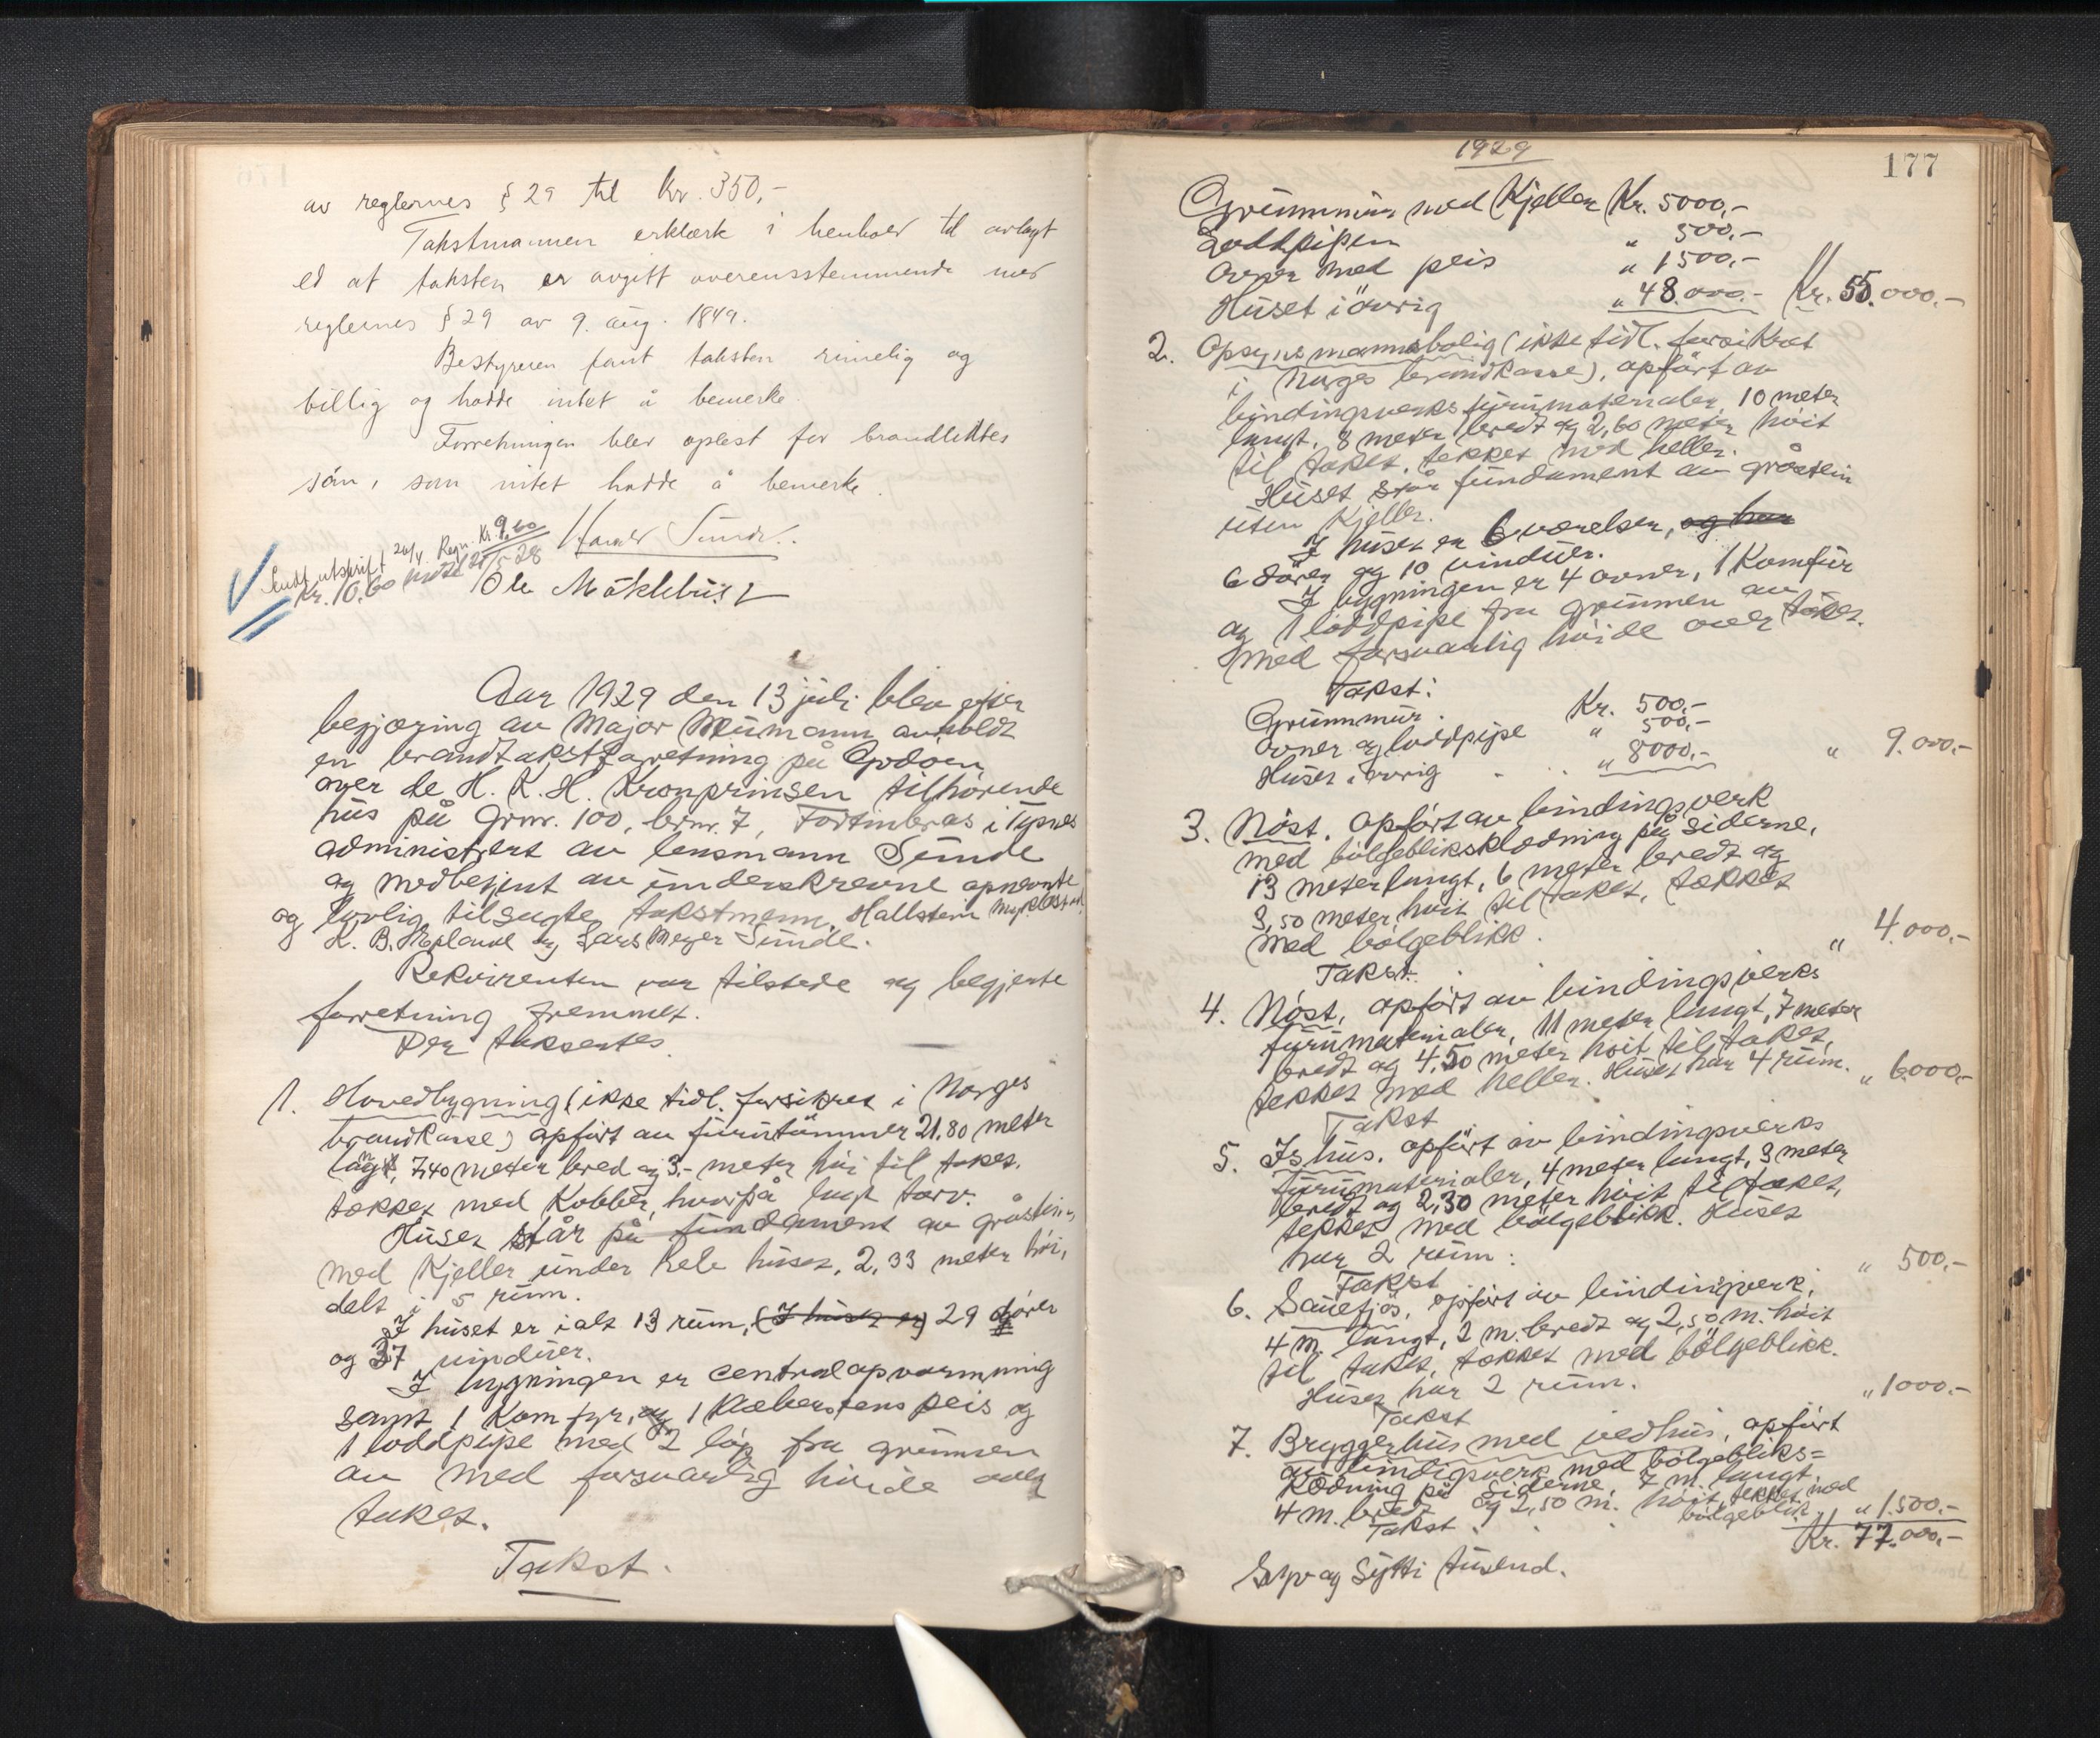 av reglernes § 29 til kr. 350,-
Takstmannen erklærte i henhold til avlagt
ed at taksten er avgitt overensstemmende med
reglernes § 29 av 9. aug. 1849.
Bestyreren fant taksten rimelig og
billig og hadde intet å bemerke.
Forretningen blev oplest for brandlidtes
sön, som intet hadde å bemerke.
Sendt utskrift 20/4 Regn. Kr. 9,60
Kr. 10.60 28
Sunde.
Ole Möklebust
Aar 1929 den 13 juli blev efter
begjæring av Major Neumann avholdt
en brandtakstforretning på Godöen
over de H. K. H. Kronprinsen tilhørende
hus på Grnr. 100, brnr. 7, Fortinbras i
administrert av lensmann Sunde
og medbetjent av underskrevne opnevnte
og lovlig tilsagte takstmenn, Hallstein Myklebust,
K. B. og Lars Meyer Sunde.
Rekvirenten var tilstede og begjerte
forretning fremmet.
Der taksertes
1. Hovedbygning (ikke tidl. forsikret i Norges
brandkasse) opfört av furutömmer 21.80 meter
langt, 7,40 meter bred og 3,- meter höi til taket.
tækket med Kobber, hvorpå lagt torv.
Huset står på fundament av gråstein,
med Kjeller under hele huset, 2,33 meter höi,
delt i 5 rum.
I huset er ialt 13 rum, (I huset er) 29 dører
og 37 vinduer.
I bygningen er centralopvarmning
samt 1 Komfyr, og 1 Klæberstens peis og
1 loddpipe med 2 löp fra grunnen
av med forsvarlig höide over
taket.
Takst.
1929
177
Grunnmur med Kjeller Kr. 5000,-
Loddpipen " 500,-
Ovner med peis " 1500,-
Huset i övrig " 48.000.- Kr. 55.000,-
2. Opsynsmannsbolig (ikke tidl. forsikret
i Norges brandkasse), opført av
bindingsverks furumaterialer, 10 meter
langt, 8 meter bredt og 2,60 meter höit
til taket, tekket med heller.
Huset står fundament av gråstein
uten Kjeller.
I huset er 6 værelser, og har
6 dörer og 10 vinduer.
I bygningen er 4 ovner, 1 Komfür
og 1 loddpipe fra grunnen av
med forsvarlig höide over taket.
Takst:
Grunnmur. Kr. 500,-
Ovner og loddpipe " 500,-
Huset i övrig " 8000,- " 9.000,-
3. Nöst. opfört av bindingsverk
med bölgebliksklædning på siderne,
13 meter langt, 6 meter bredt og
3,50 meter höit til taket, tækket
med bølgeblikk.
Takst. " 4.000,-
4. Nöst, opfört av bindingsverks
furumaterialer, 11 meter langt, 7 meter
bredt og 4,50 meter höit til taket,
tekket med heller. Huset har 4 rum.
Takst " 6.000,-
5. Ishus. opfört av bindingsverks
furumaterialer, 4 meter langt, 3 meter
bredt og 2,30 meter höit til taket,
tekket med bölgeblikk. Huset
har 2 rum.
Takst " 500,-
6. Sauefjös, opfört av bindingsverk,
4 m. langt, 2 m. bredt og 2,50 m. höit
til taket, tækket med bölgeblikk.
Huset har 2 rum.
Takst " 1000,-
7. Bryggerhus med vedhus, opfört
av bindigsverk med bölgebliks=
klædning på siderne, 7 m. langt,
4 m. bredt og 2,50 m. höit, tekket med
bölgeblik.
Takst. " 1.500.-
Kr. 77.000,-
Syv og sytti tusend.